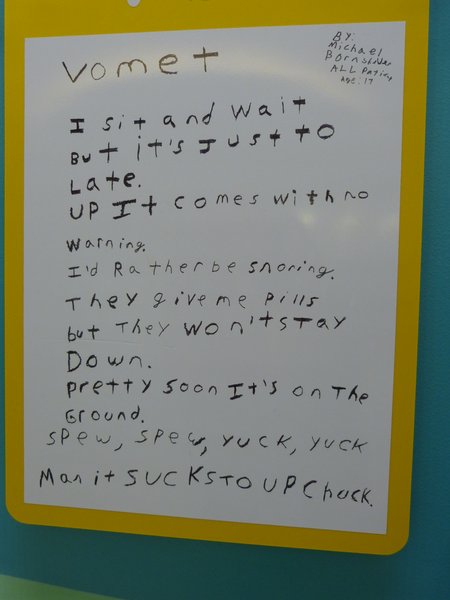 Vomet
BY:
Michael
ALL Patient
Age: 17
I sit and Wait
But it's Just to
Late.
UP It comes with no
Warning.
I'd Rather be snoring.
They give me pills
but They WON'T STAY
Down.
Pretty soon It's on The
Ground.
SPew, SPew, YUCK, YUCK
Man it SUCKS TO UPChuck.